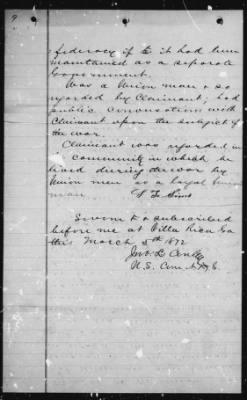 9
federacy if it had been
maintained as a separate
Government.
Was a Union man & so
regarded by Claimant; had
public conversation with
Claimant upon the subject of
the war.
Claimant was regarded in
community in which he
lived during the war by
Union men as a loyal Union
man.
Sworn to & subscribed
before me at Villa Rica Ga
this March 5th 1872